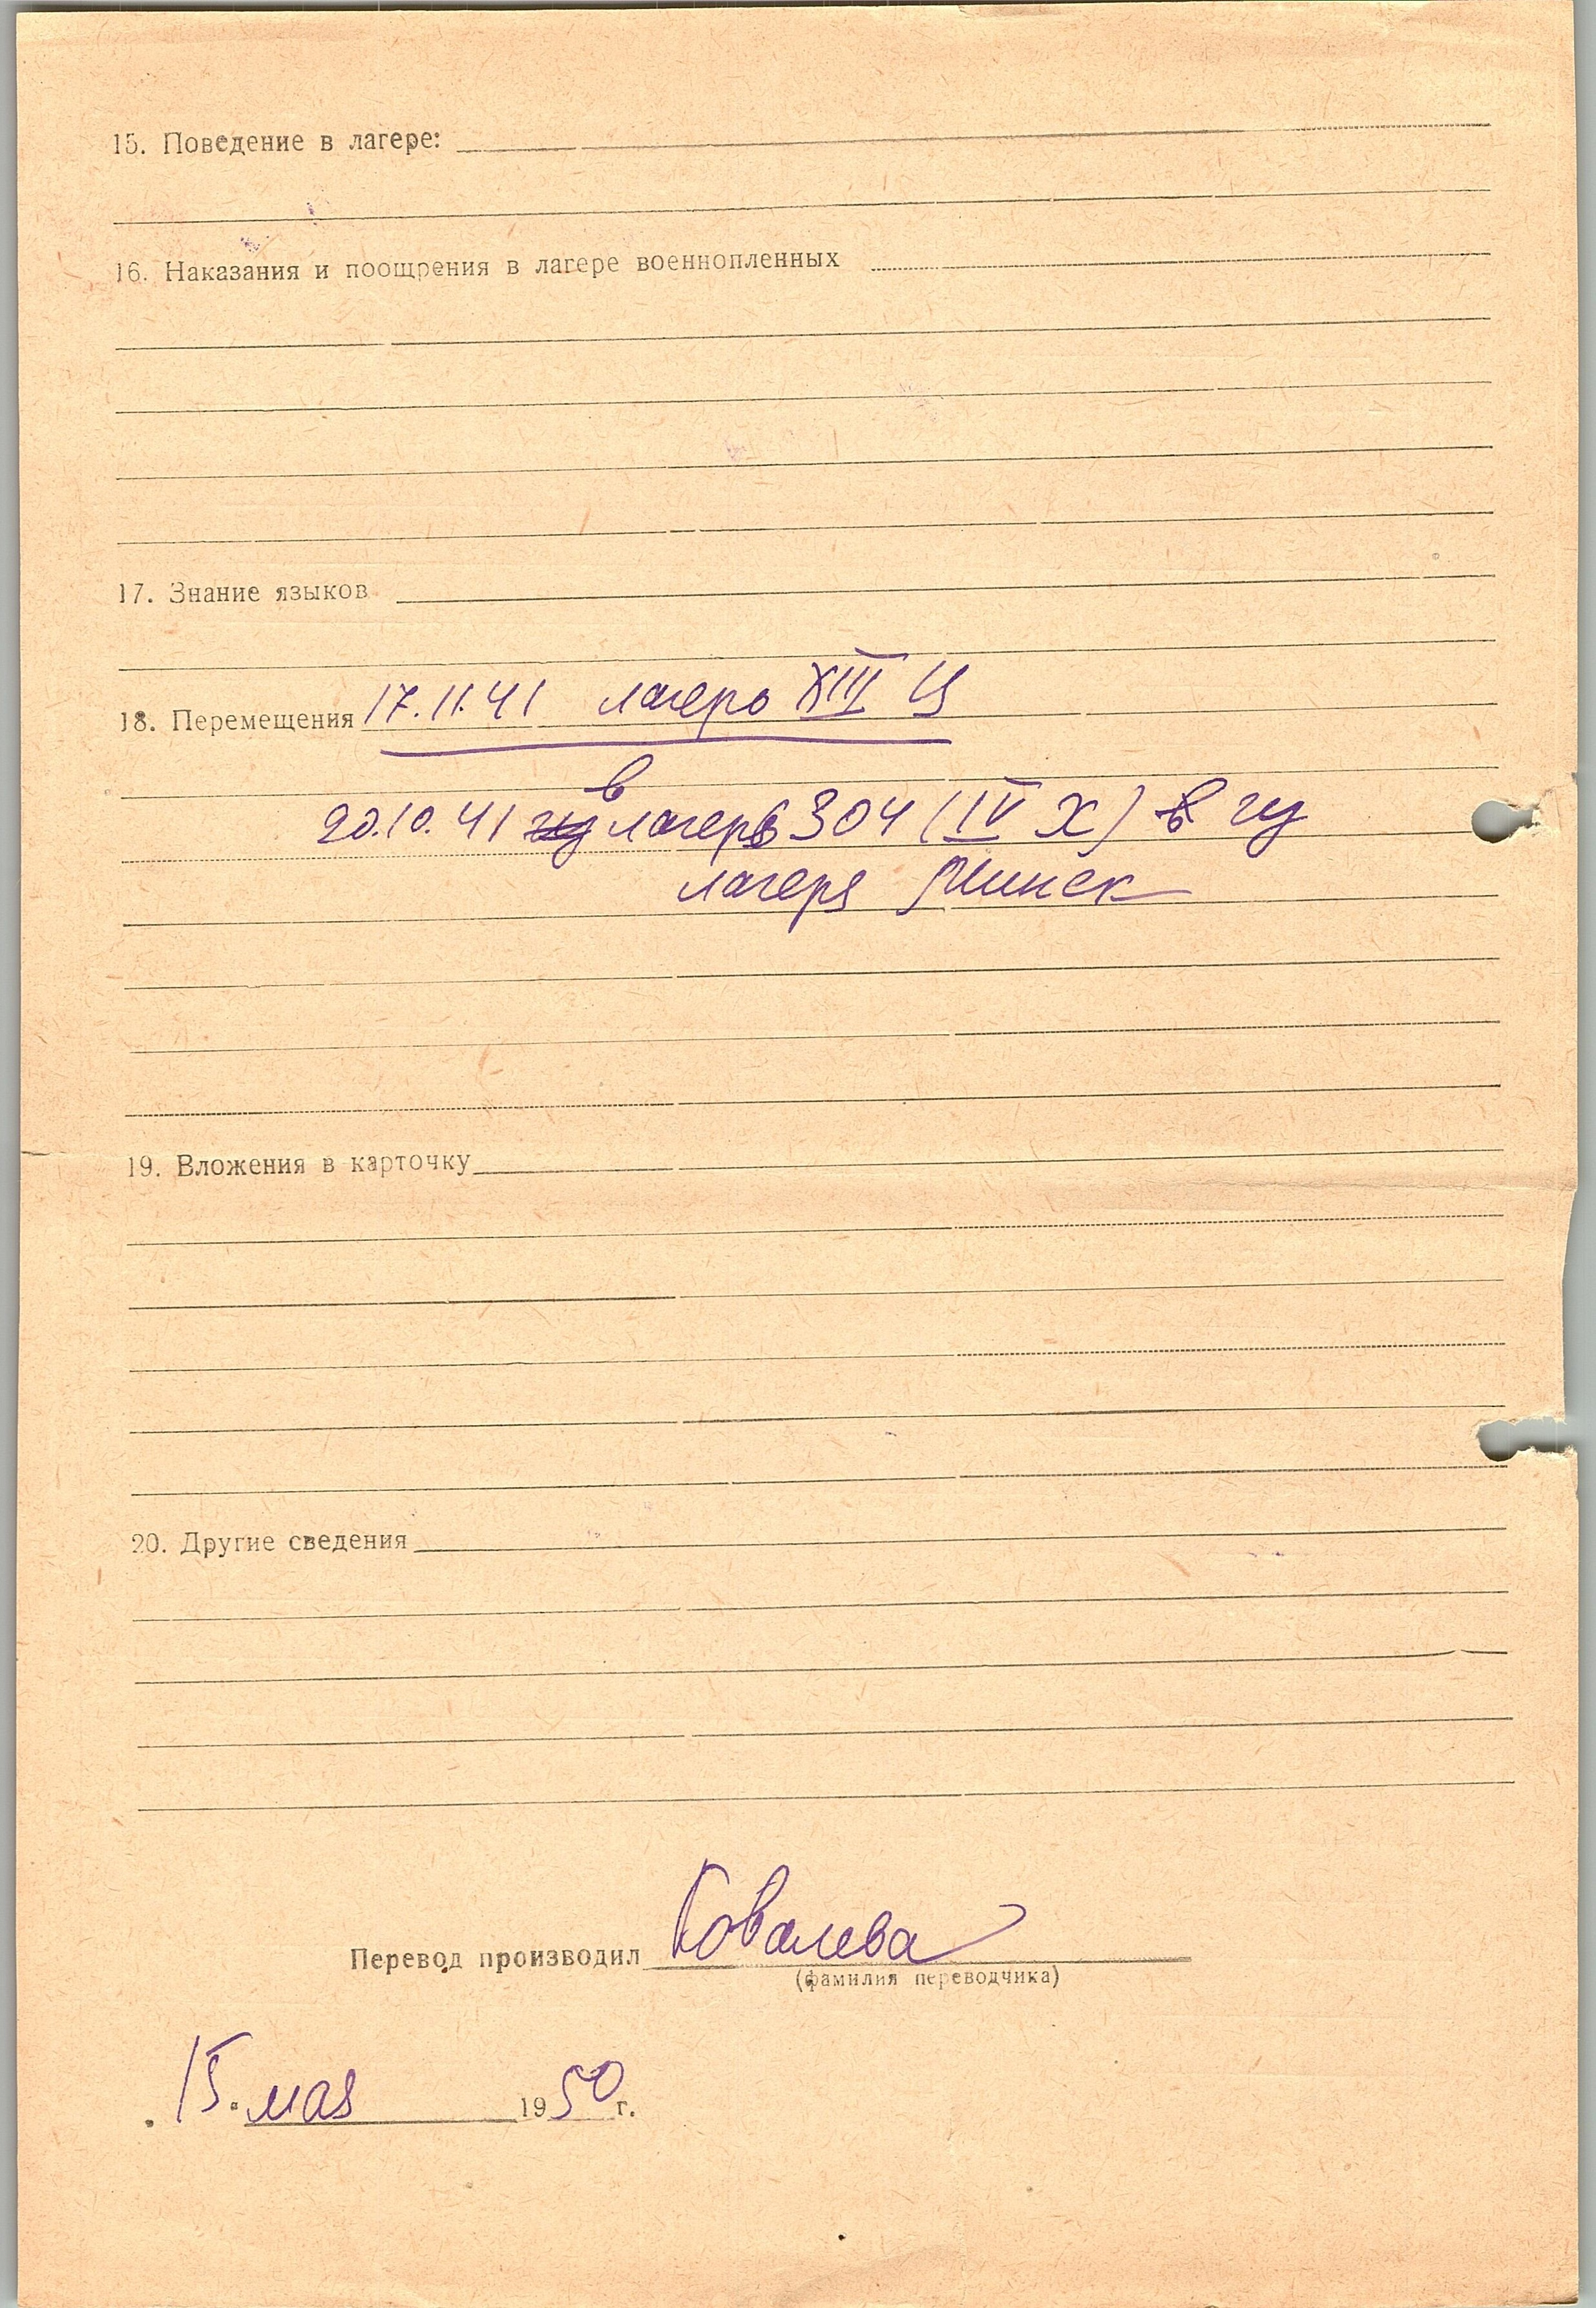 15. Поведение в лагере:
16. Наказания и поощрения в лагере военнопленных
17. Знание языков
18. Перемещения 17.11.41 лагерь XIII Ц
в
20.10.41 из лагерь 304 (IV Х) в из
лагеря Минск
19. Вложения в карточку
20. Другие сведения
Перевод производил Ковалева
(фамилия переводчика)
15. мая 1950 г.